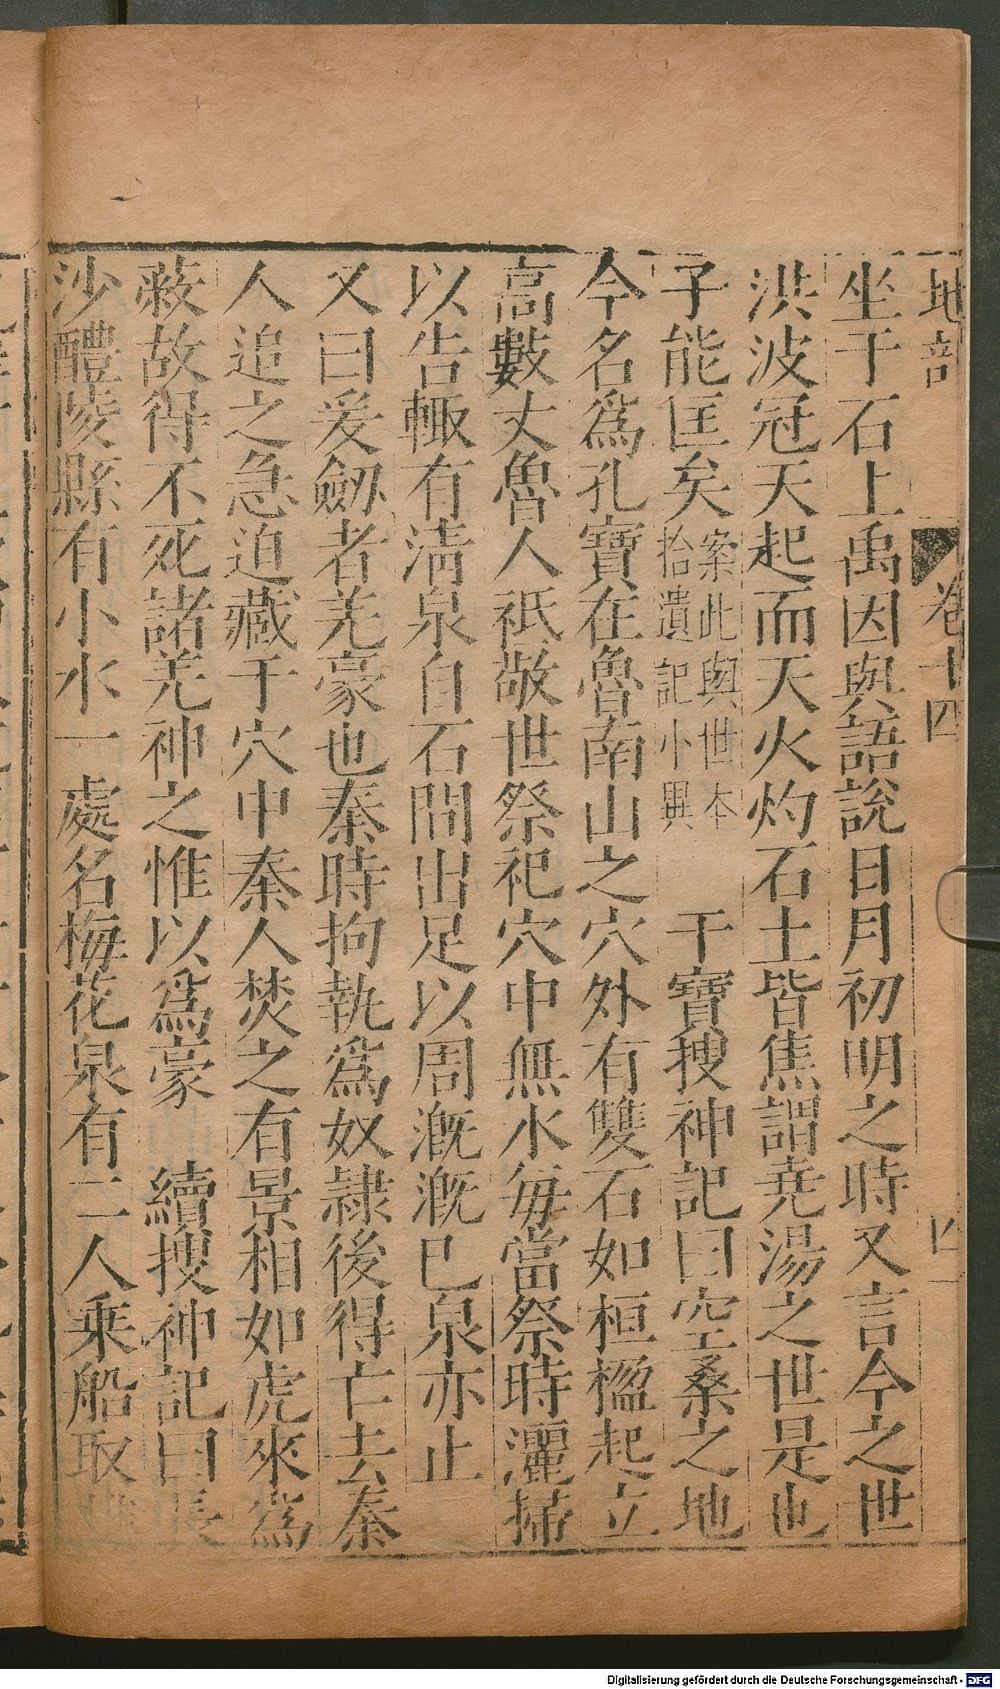 地部 卷十四 四
坐于石上禹因與語說日月初明之時又言今之世
洪波冠天起而天火灼石土皆焦謂堯湯之世是也
子能匡矣案此與世本拾遺記小異 干寶搜神記曰空桑之地
今名爲孔寶在魯南山之穴外有雙石如桓楹起立
高數丈魯人祇敬世祭祀穴中無水每當祭時灑掃
以告輙有淸泉自石間出足以周漑漑已泉亦止
又曰爰劒者羌豪也秦時拘執爲奴隷後得亡去秦
人追之急迫藏于穴中秦人焚之有景相如虎來爲
蔽故得不死諸羌神之惟以爲豪 續搜神記曰長
沙醴陵縣有小水一處名梅花泉有二人乘船取樵
Digitalisierung gefördert durch die Deutsche Forschungsgemeinschaft - DFG